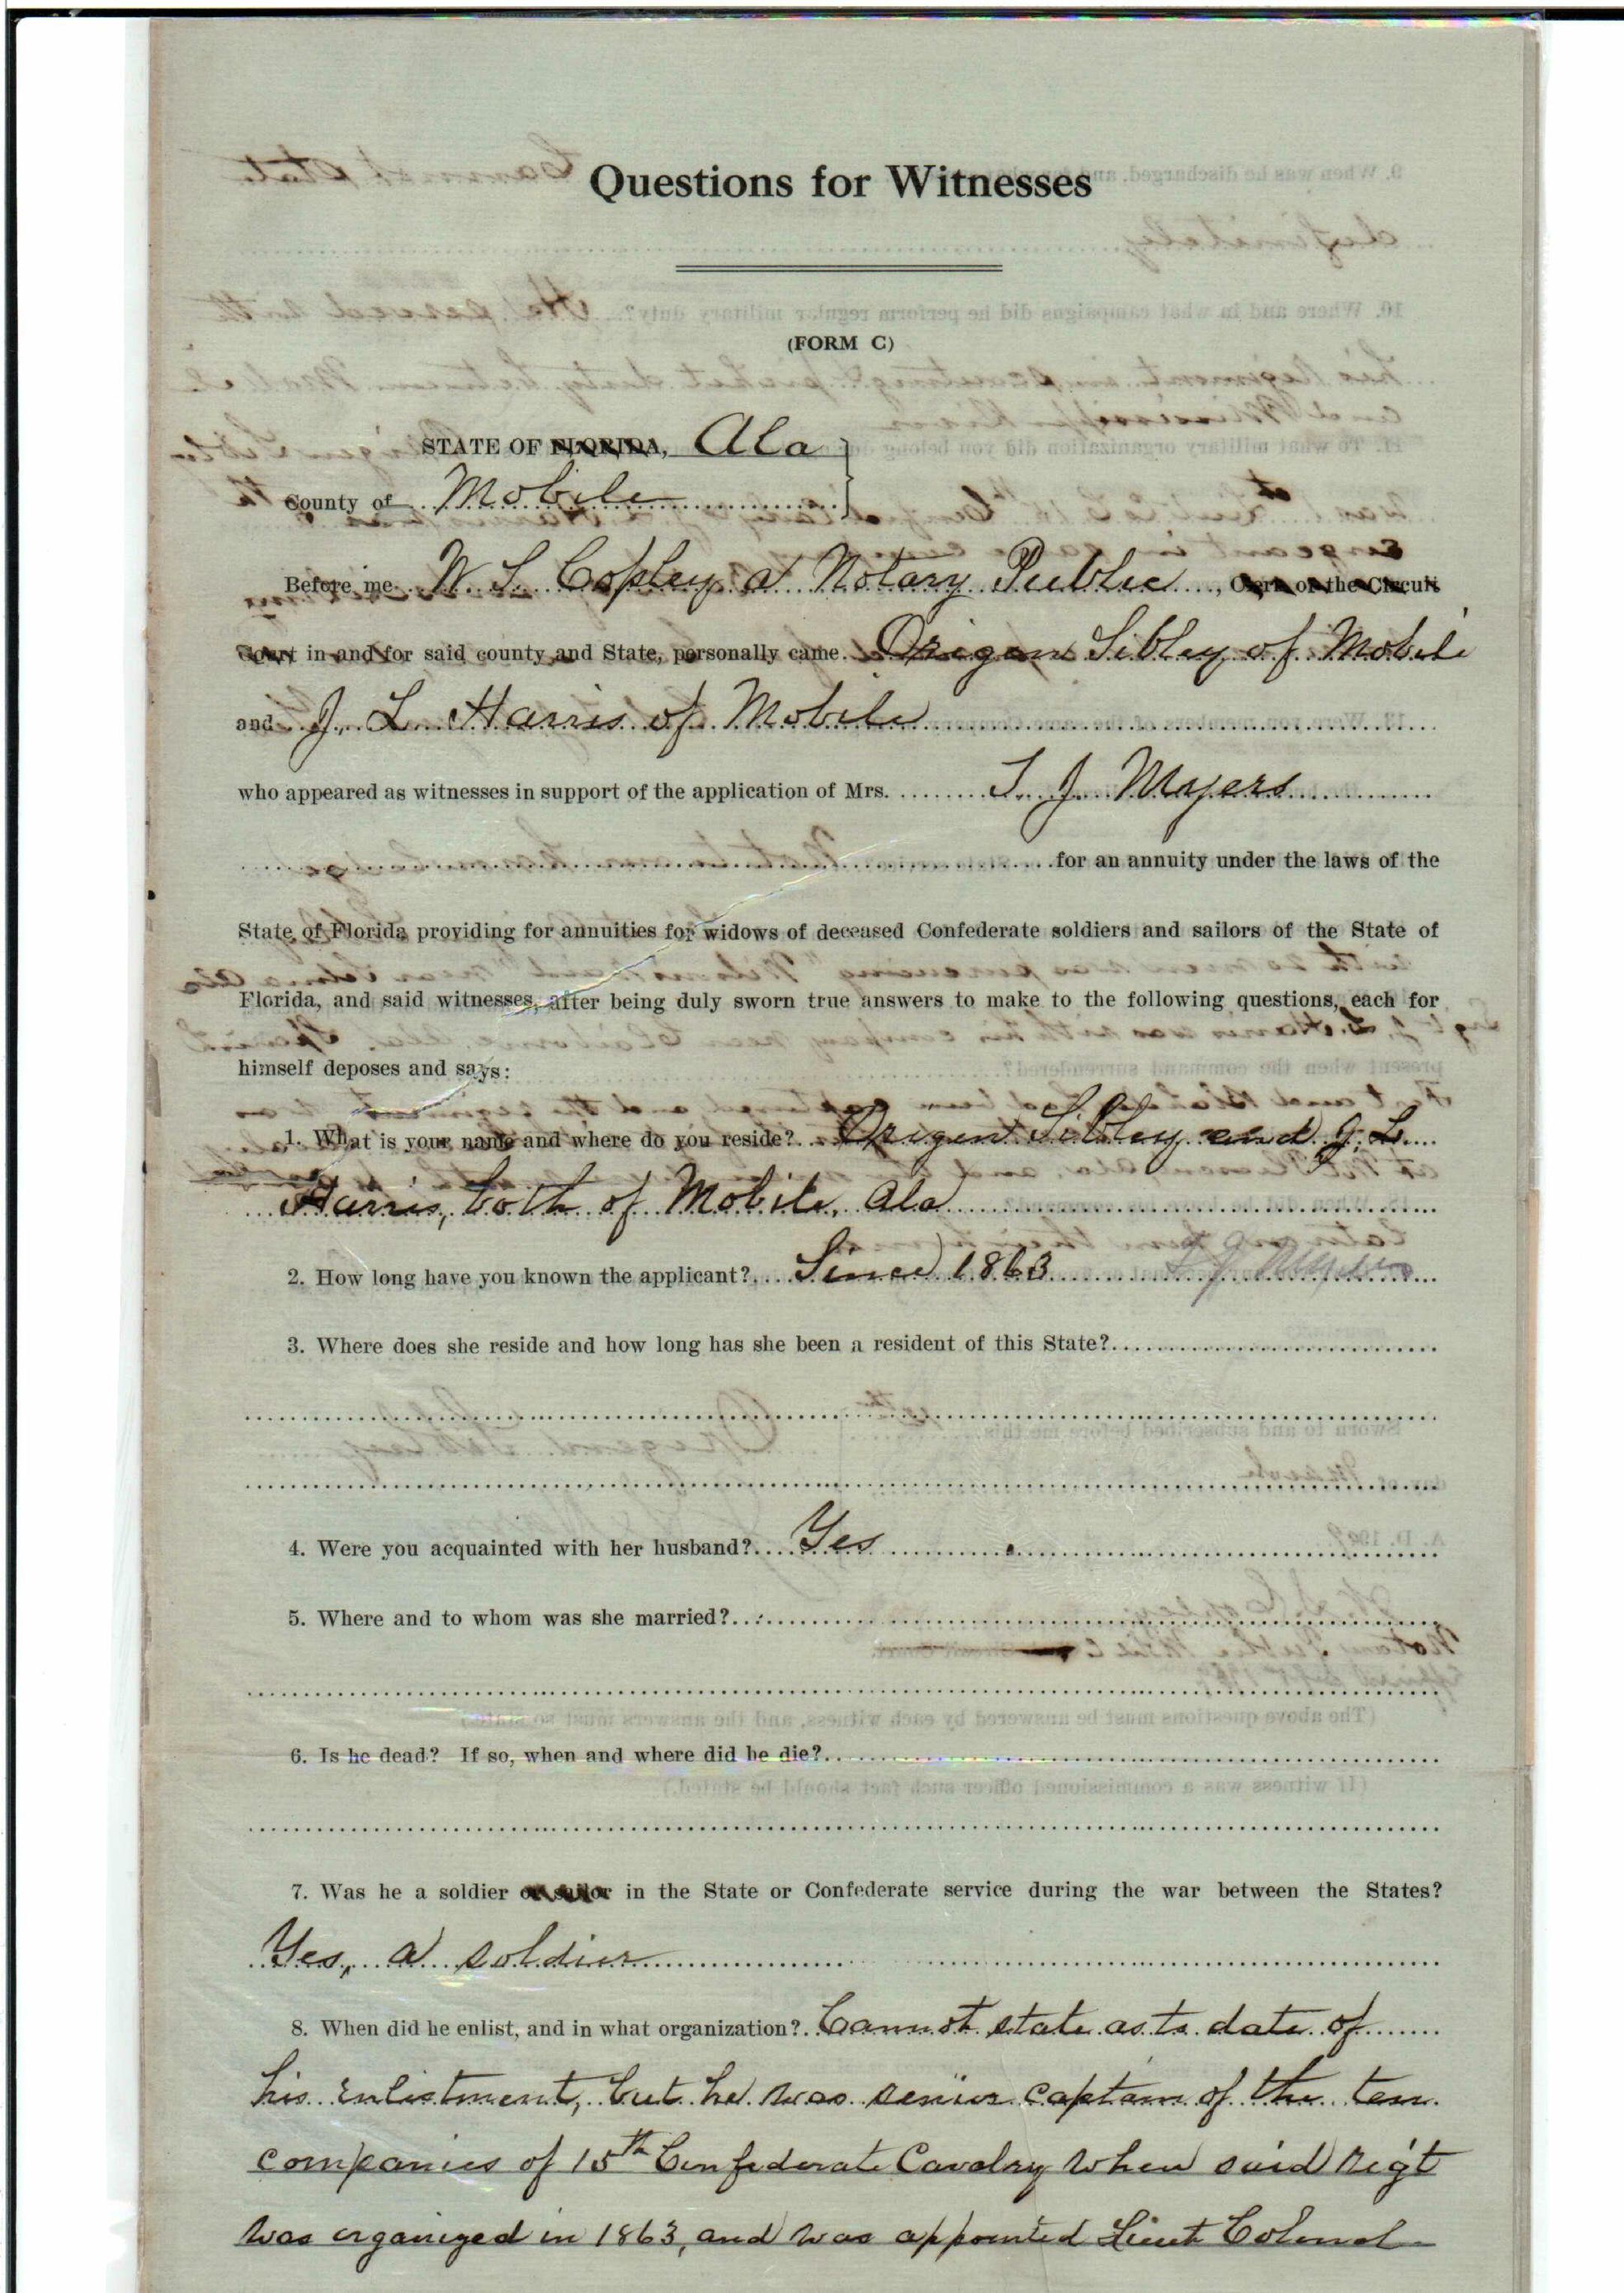 Questions for Witnesses
(FORM C)
STATE OF FLORIDA, Ala
County of Mobile
Before me W. S. Copley a Notary Public, Clerk of the Circuit
Court in and for said county and State, personally came Origen Sibley of Mobile
and J. L. Harris of Mobile
who appeared as witnesses in support of the application of Mrs. T. J. Myers
for an annuity under the laws of the
State of Florida providing for annuities for widows of deceased Confederate soldiers and sailors of the State of
Florida, and said witnesses, after being duly sworn true answers to make to the following questions, each for
himself deposes and says:
1. What is your name and where do you reside? Origen Sibley and J. L.
Harris, both of Mobile, Ala
2. How long have you known the applicant? Since 1863 T J Myers
3. Where does she reside and how long has she been a resident of this State?
4. Were you acquainted with her husband? Yes
5. Where and to whom was she married?
6. Is he dead? If so, when and where did he die?
7. Was he a soldier or sailor in the State or Confederate service during the war between the States?
Yes, a soldier
8. When did he enlist, and in what organization? Cannot state as to date of
his enlistment, but he was senior captain of the ten
companies of 15th Confederate Cavalry when said Reg't
was organized in 1863, and was appointed Lieut Colonel